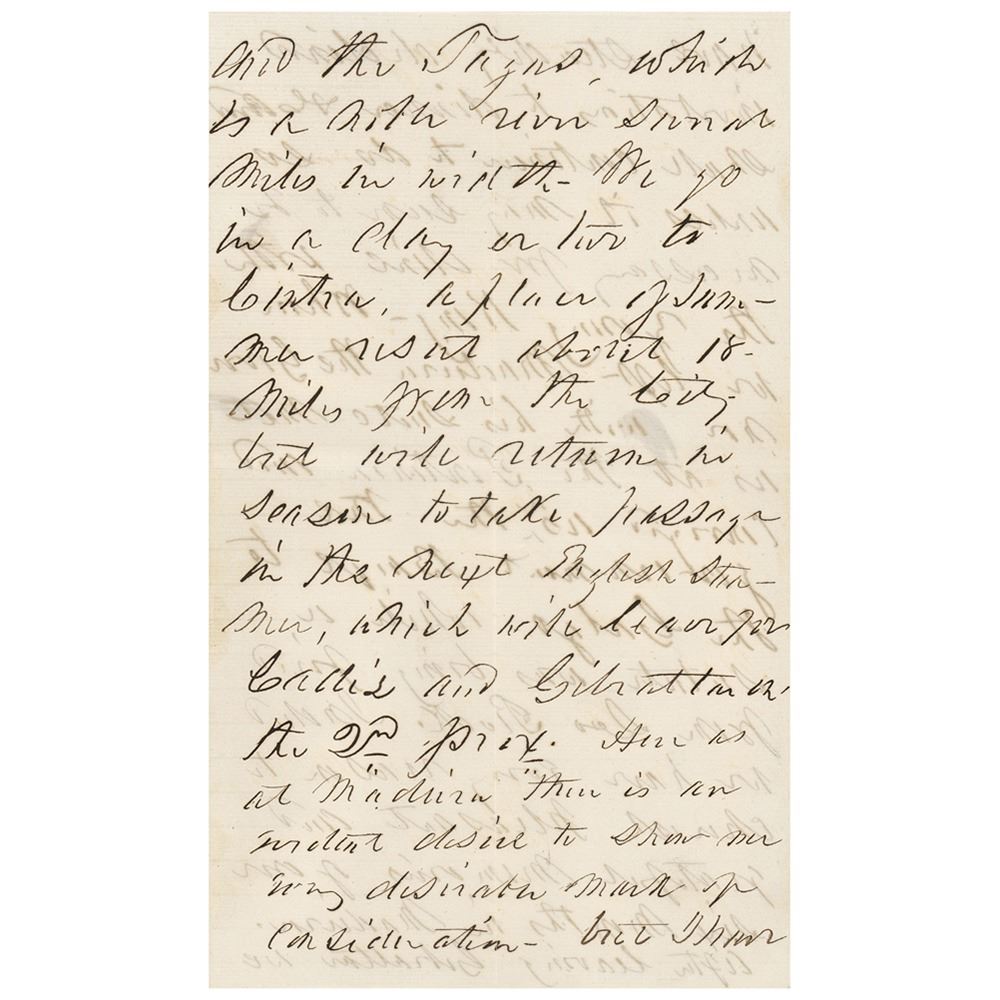 and the Tagus, which
is a noble river several
miles in width - We go
in a day or two to
Cintra, a place of sum-
mer resort about 18
miles from the City
but will return in
season to take passage
in the next English Stea-
mer, which will leave for
Cadiz and Gibraltar on
the 2nd prox. Here as
at "Madeira" there is an
evident desire to show me
every desirable mark of
consideration - but I have